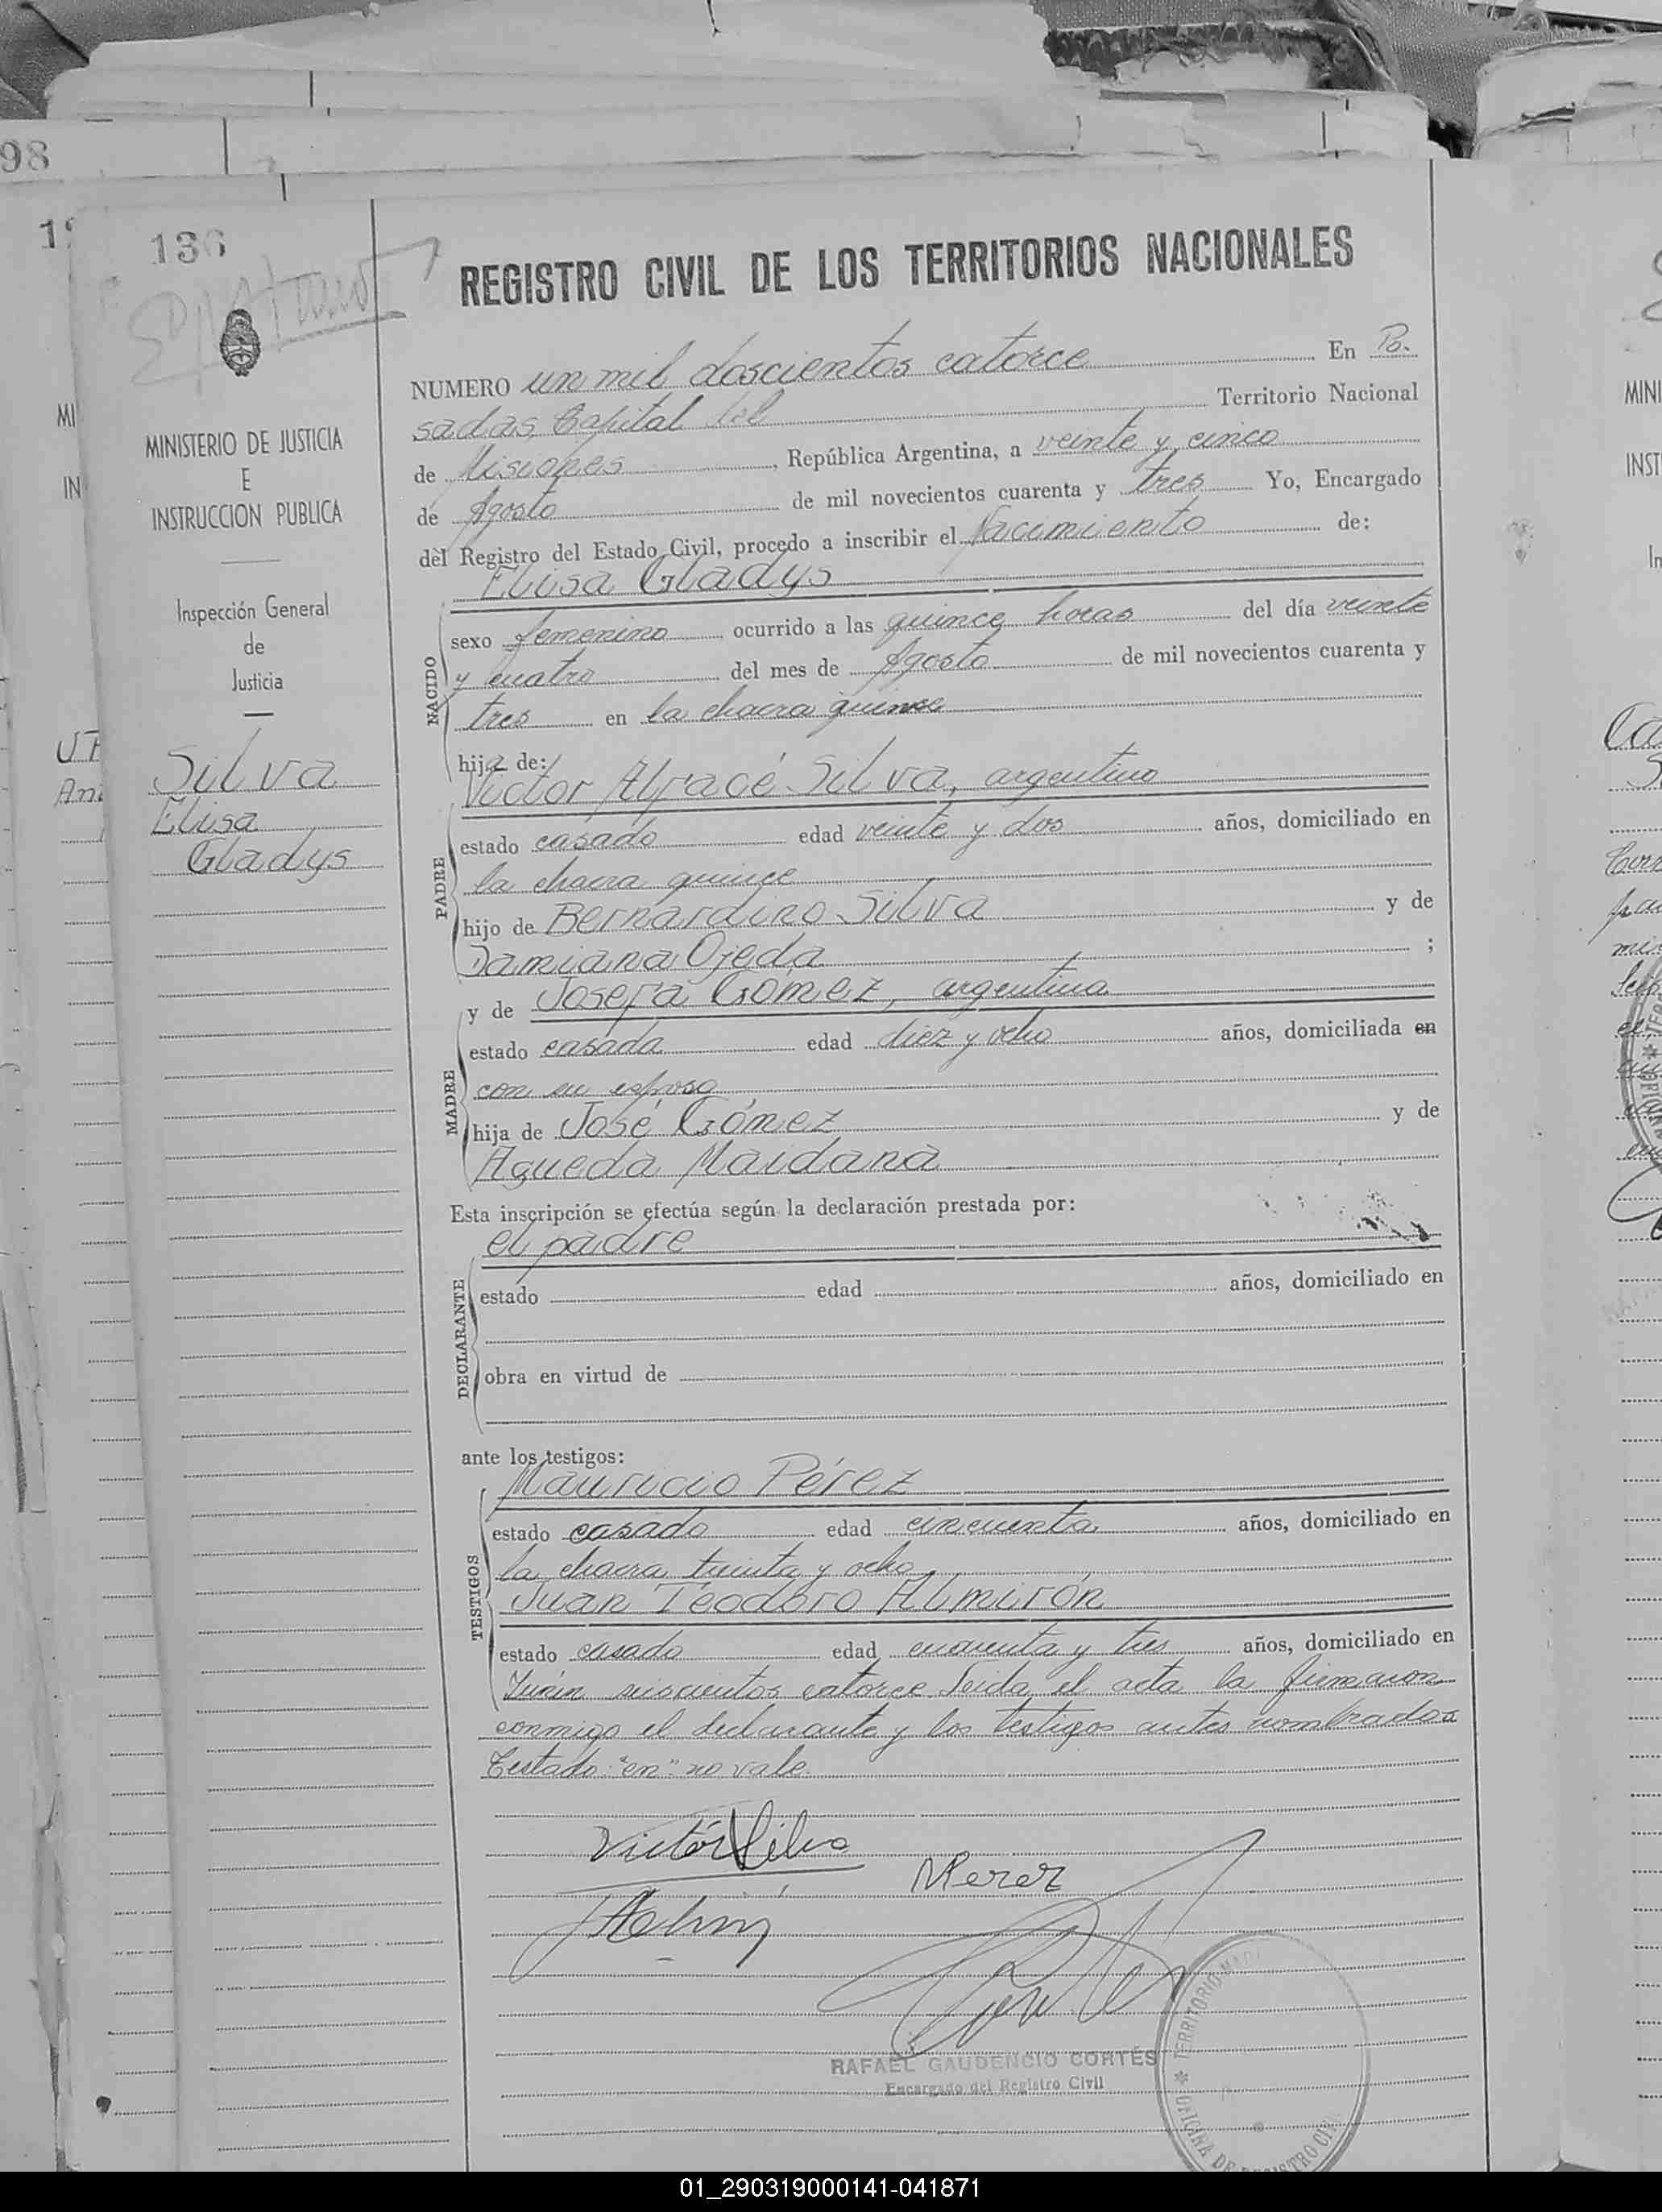 98
136
REGISTRO CIVIL DE LOS TERRITORIOS NACIONALES
NUMERO un mil doscientos catorce En Po-
sadas, Capital del Territorio Nacional
de Misiones, República Argentina, a veinte y cinco
de Agosto de mil novecientos cuarenta y tres Yo, Encargado
del Registro del Estado Civil, procedo a inscribir el Nacimiento de:
Elisa Gladys
sexo femenino ocurrido a las quince horas del día veinte
y cuatro del mes de Agosto de mil novecientos cuarenta y
tres en la chacra quince
hija de:
Victor Alfacé Silva, argentino
estado casado edad veinte y dos años, domiciliado en
la chacra quince
hijo de Bernardino Silva y de
Damiana Ojeda ;
y de Josefa Gómez, argentina
estado casada edad diez y ocho años, domiciliada en
con su esposo
hija de José Gómez y de
Agueda Maidana
Esta inscripción se efectúa según la declaración prestada por:
el padre
estado edad años, domiciliado en
obra en virtud de
ante los testigos:
Mauricio Pérez
estado casado edad cincuenta años, domiciliado en
la chacra treinta y ocho
Juan Teodoro Almirón
estado casado edad cuarenta y tres años, domiciliado en
Junín seiscientos catorce. Leida el acta la firmaron
conmigo el declarante y los testigos antes nombrados
Testado: "en": no vale
NACIDO
PADRE
MADRE
DECLARANTE
TESTIGOS
Victor Silva
MPerez
RAFAEL GAUDENCIO CORTÉS
Encargado del Registro Civil
TERRITORIO
OFICINA DE REGISTRO CIVIL
MINISTERIO DE JUSTICIA
E
INSTRUCCION PUBLICA
Inspección General
de
Justicia
Silva
Elisa
Gladys
MINI
INST
01_290319000141-041871